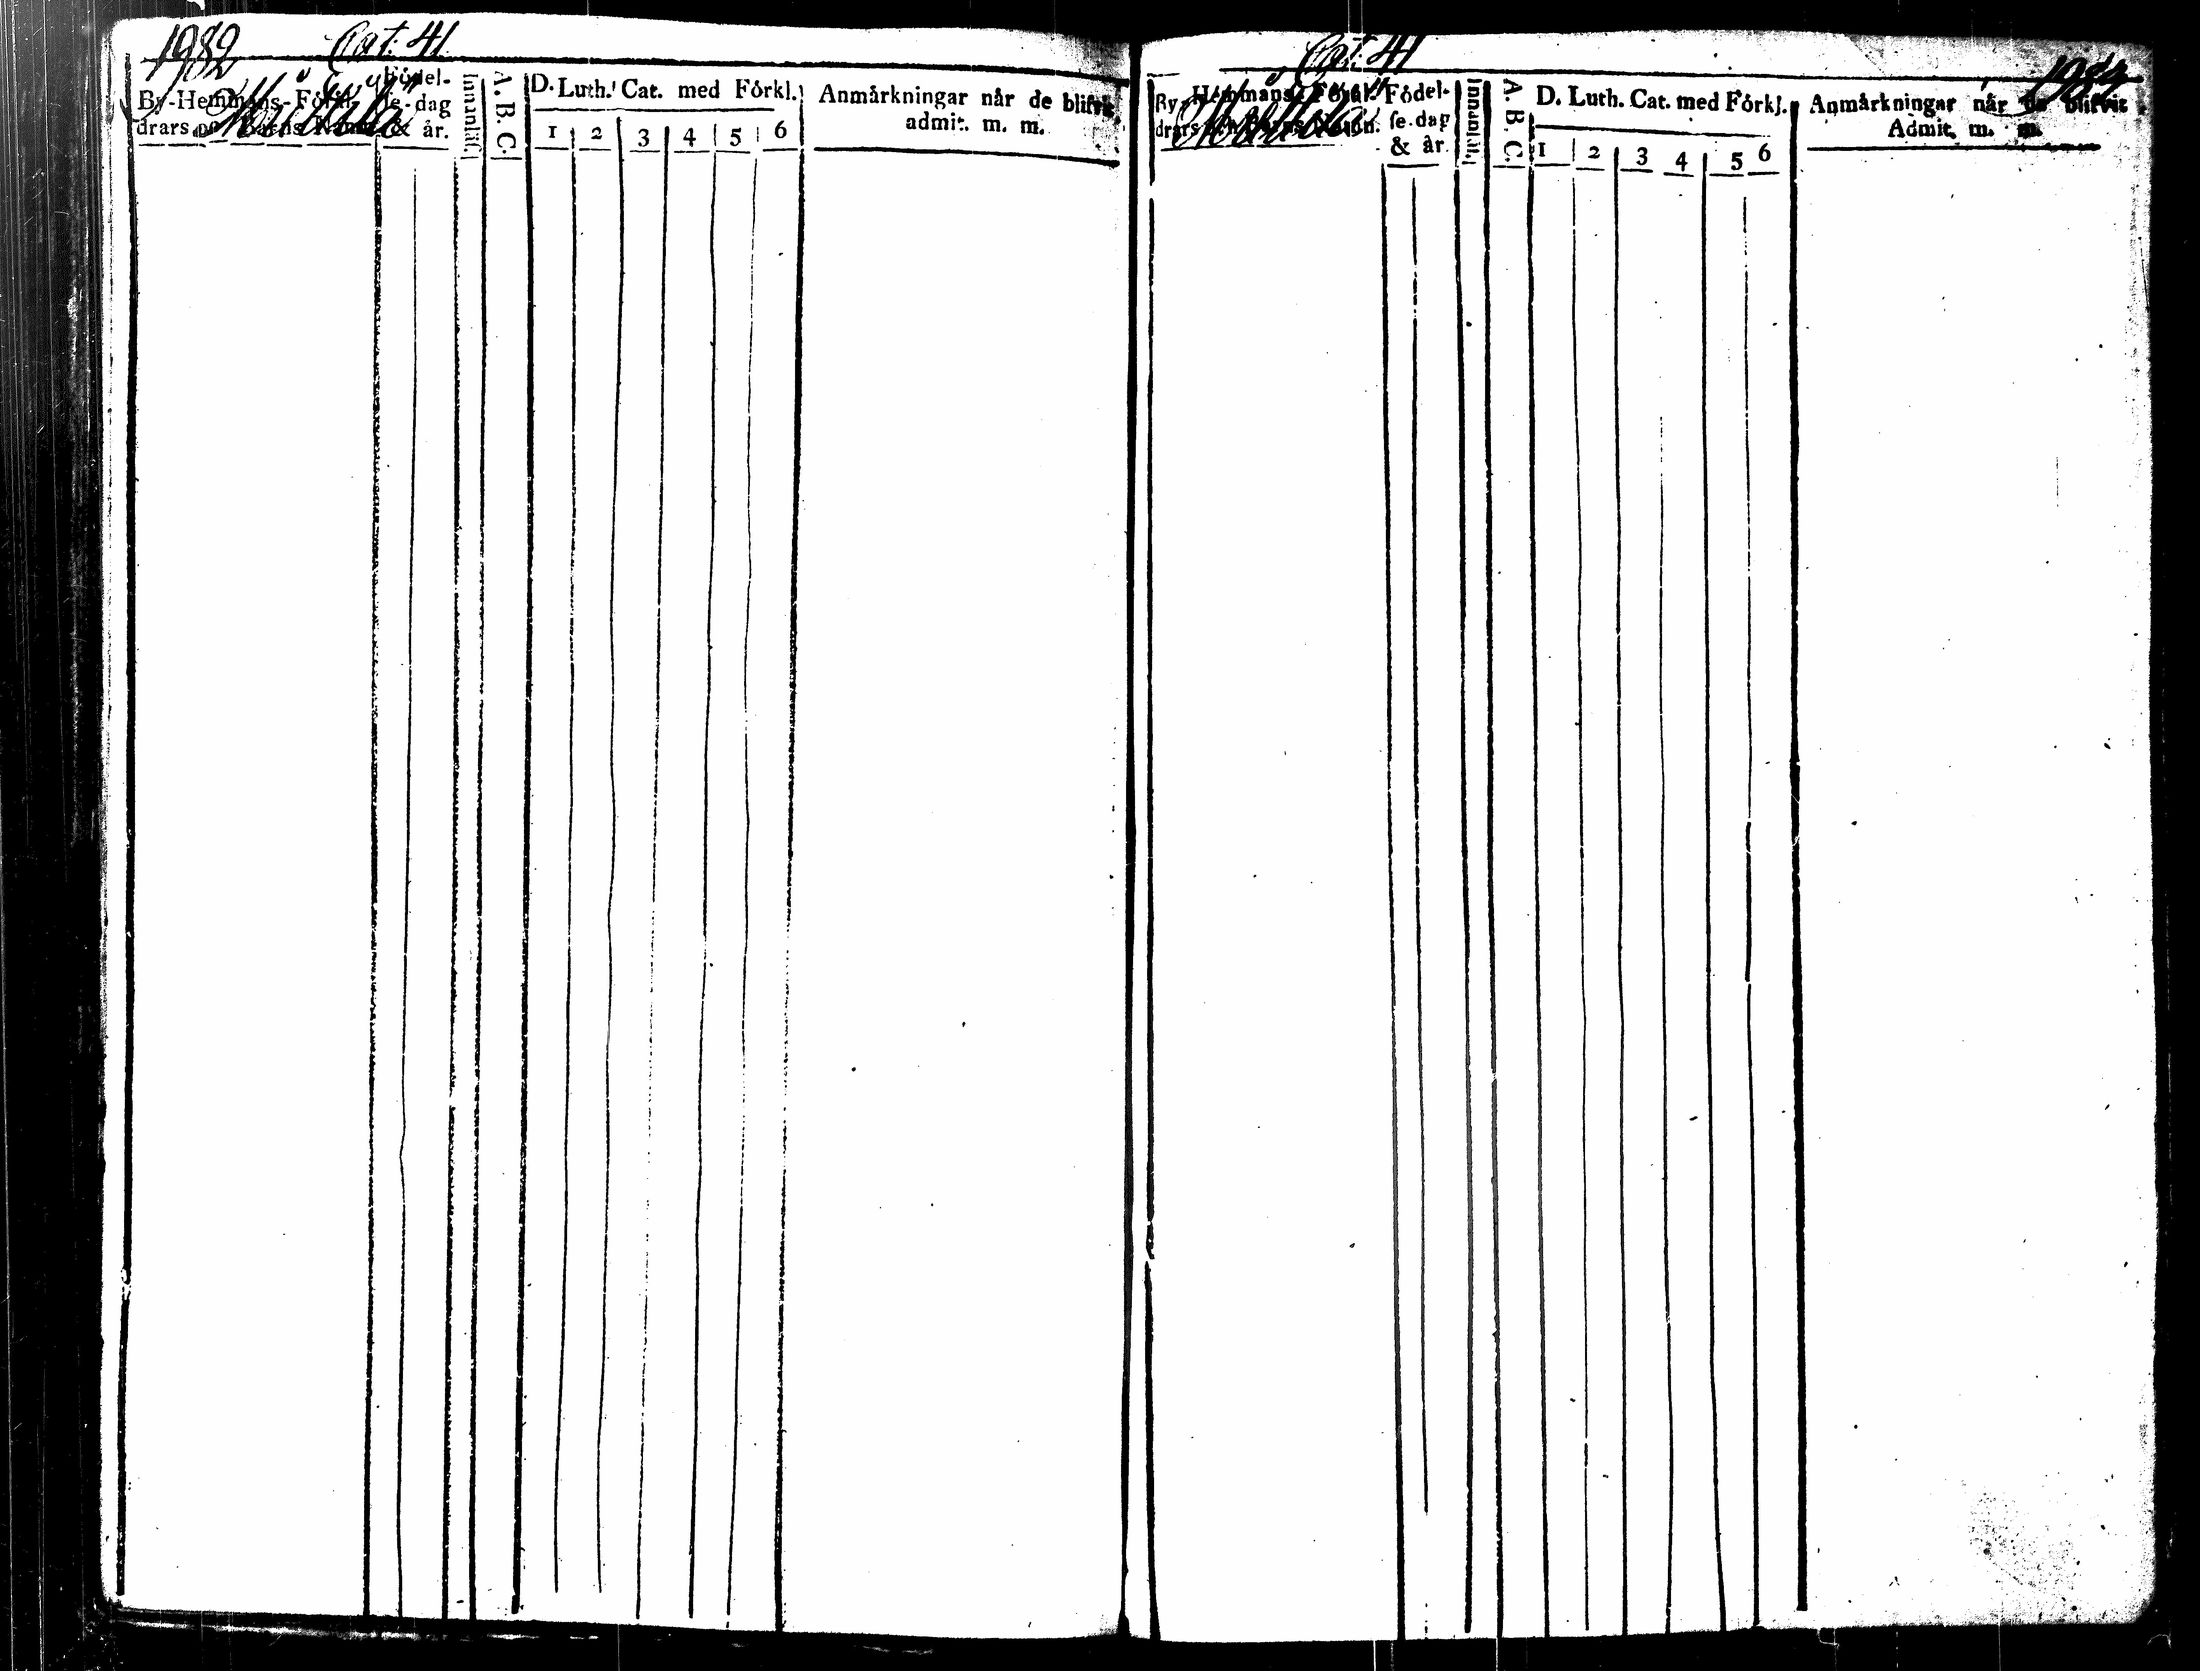 1982 Cat. 41
By-Hemmans- Förål- Födel- Innanläs. A. B. C. D. Luth. Cat. med Förkl. Anmårkningar når de blifvit
drars och Barns Namn. se-dag admit. m. m.
& år. 1 2 3 4 5 6
Cat. 41 1983
By- Hemmans- Förål- Födel- Innanläs. A. B. C. D. Luth. Cat. med Förkl. Anmårkningar når de blifvit
drars och Barns Namn. se-dag Admit. m. m.
& år. 1 2 3 4 5 6